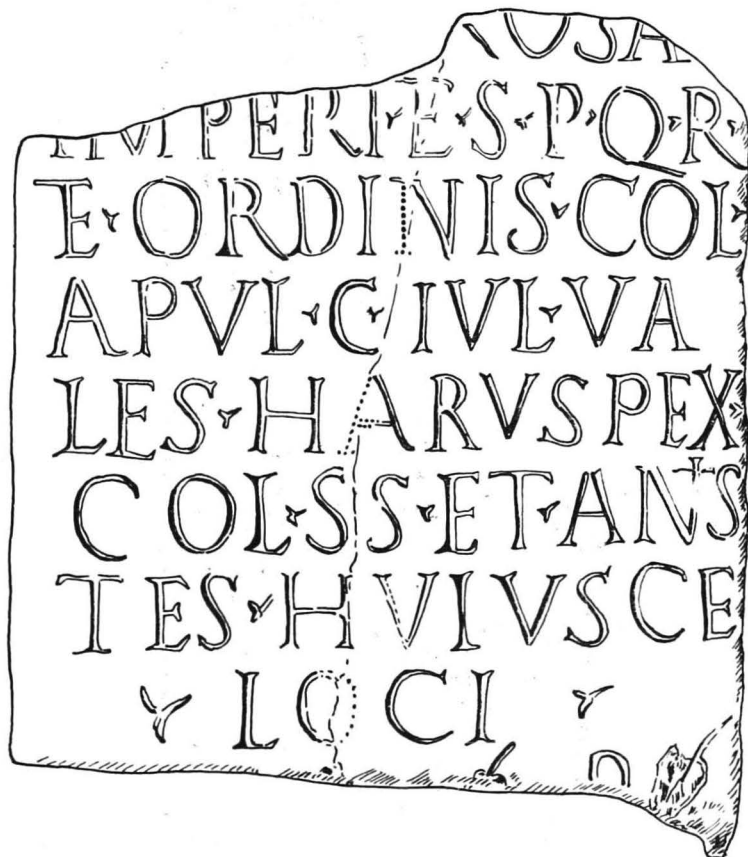 ROSA
IMPERI·E·S·P·Q·R·
E·ORDINIS·COL·
APVL·C·IVL·VA
LES·HARVSPEX·
COL·S S·ET·ANTIS
TES·HVIVSCE
· LOCI ·